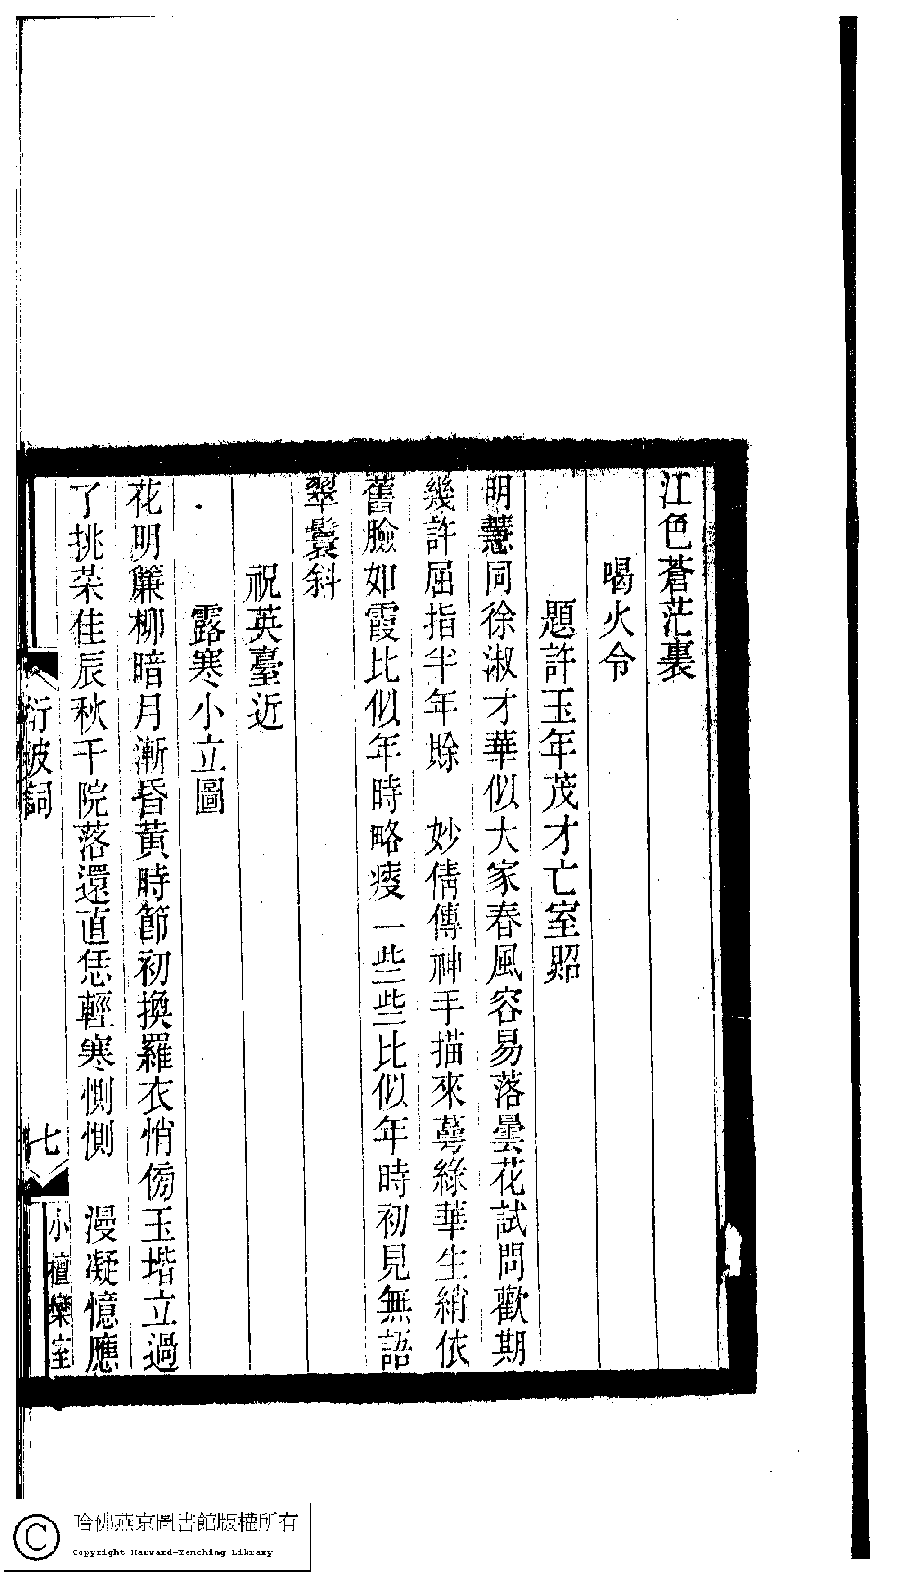 江色蒼茫裏
喝火令
題許玉年茂才亡室照
明慧同徐淑才華似大家春風容易落曇花試問歡期
幾許屈指半年賒　妙倩傳神手描來萼綠華生綃依
舊臉如霞比似年時略瘦一些些比似年時初見無語
翠鬟斜
祝英臺近
露寒小立圖
花明簾柳暗月漸昏黃時節初換羅衣悄傍玉堦立過
了挑菜佳辰秋千院落還直恁輕寒惻惻　漫凝憶應
衍波詞
七
小檀欒室
哈佛燕京圖書館版權所有
Copyright Harvard-Yenching Library